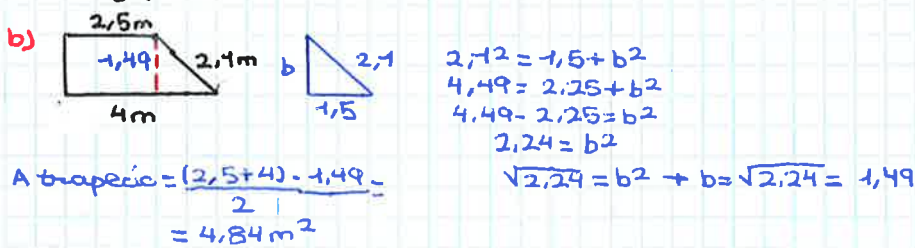 b)
2,5m
1,49
2,1m
4m
b
2,1
1,5
2,12 = 1,5 + b2
4,49 = 2,25 + b2
4,49 - 2,25 = b2
2,24 = b2
√2,24 = b2 → b = √2,24 = 1,49
A trapecio = (2,5+4) · 1,49 =
2
= 4,84 m2